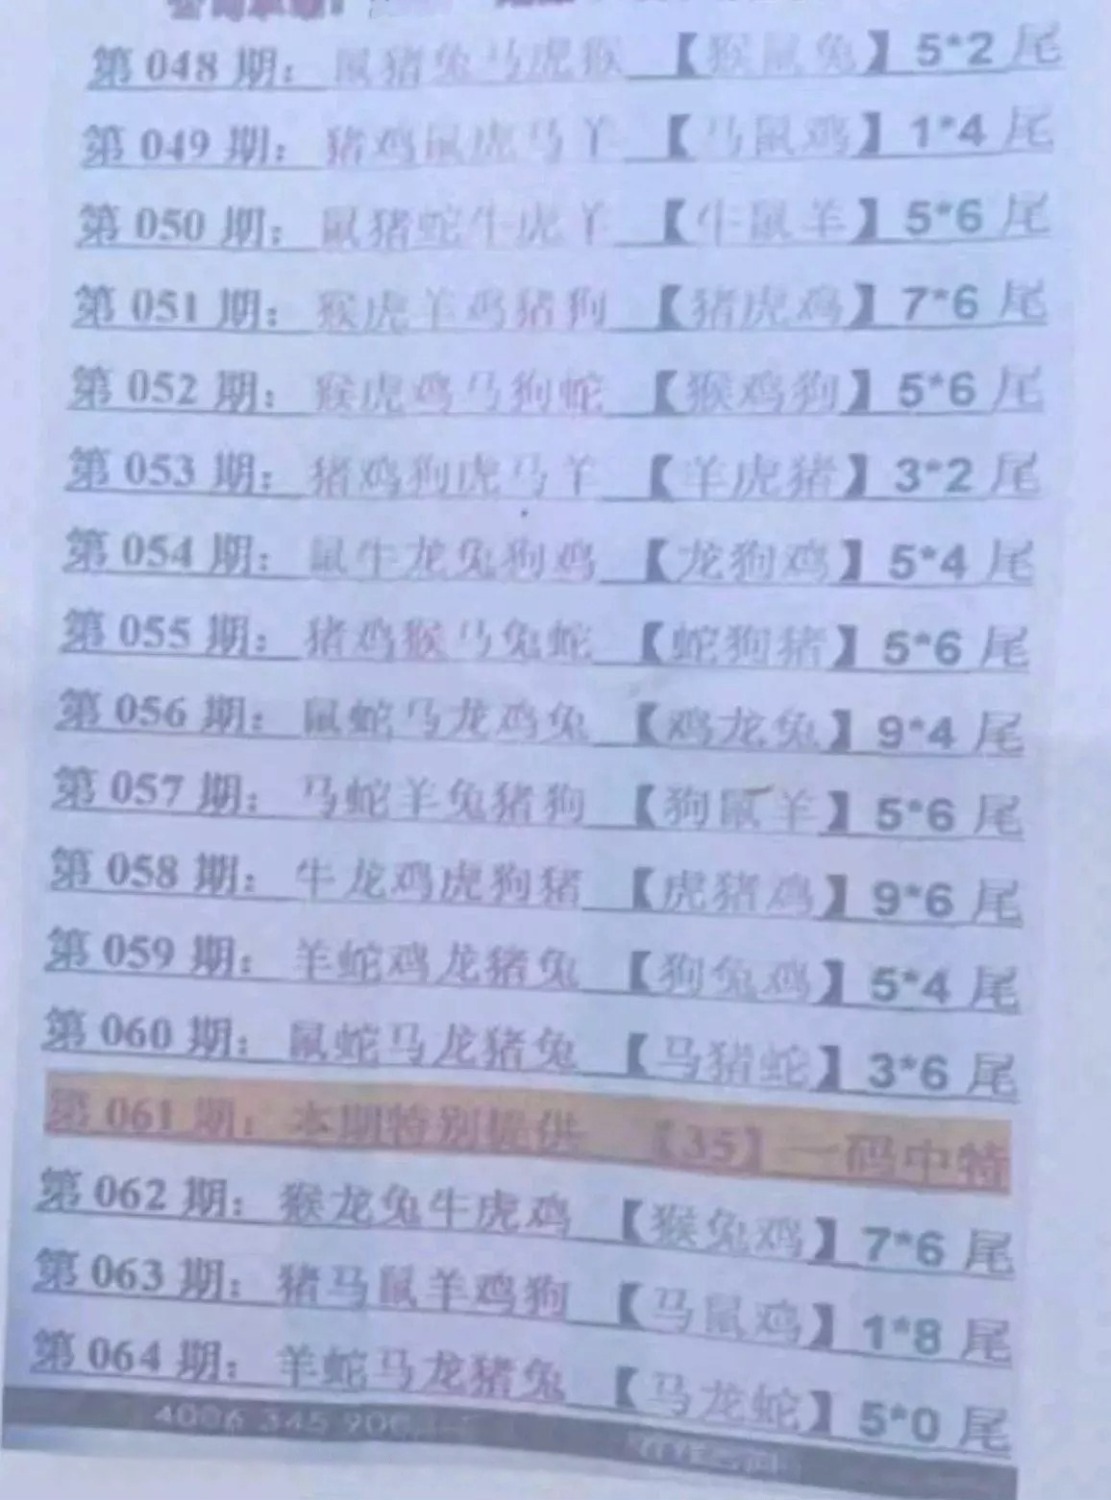 第048期：鼠猪兔马虎猴【猴鼠兔】5*2尾
第049期：猪鸡鼠虎马羊【马鼠鸡】1*4尾
第050期：鼠猪蛇牛虎羊【牛鼠羊】5*6尾
第051期：猴虎羊鸡猪狗【猪虎鸡】7*6尾
第052期：猴虎鸡马狗蛇【猴鸡狗】5*6尾
第053期：猪鸡狗虎马羊【羊虎猪】3*2尾
第054期：鼠牛龙兔狗鸡【龙狗鸡】5*4尾
第055期：猪鸡猴马兔蛇【蛇狗猪】5*6尾
第056期：鼠蛇马龙鸡兔【鸡龙兔】9*4尾
第057期：马蛇羊兔猪狗【狗鼠羊】5*6尾
第058期：牛龙鸡虎狗猪【虎猪鸡】9*6尾
第059期：羊蛇鸡龙猪兔【狗兔鸡】5*4尾
第060期：鼠蛇马龙猪兔【马猪蛇】3*6尾
第061期：本期特别提供【35】一码中特
第062期：猴龙兔牛虎鸡【猴兔鸡】7*6尾
第063期：猪马鼠羊鸡狗【马鼠鸡】1*8尾
第064期：羊蛇马龙猪兔【马龙蛇】5*0尾